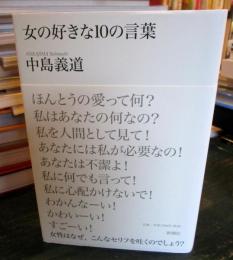 女の好きな10の言葉
NAKAJIMA Yoshimichi
中島義道
ほんとうの愛って何？
私はあなたの何なの？
私を人間として見て！
あなたには私が必要なの！
あなたは不潔よ！
私に何でも言って！
私に心配かけないで！
わかんなーい！
かわいーい！
すごーい！
女性はなぜ、こんなセリフを吐くのでしょう？
新潮社